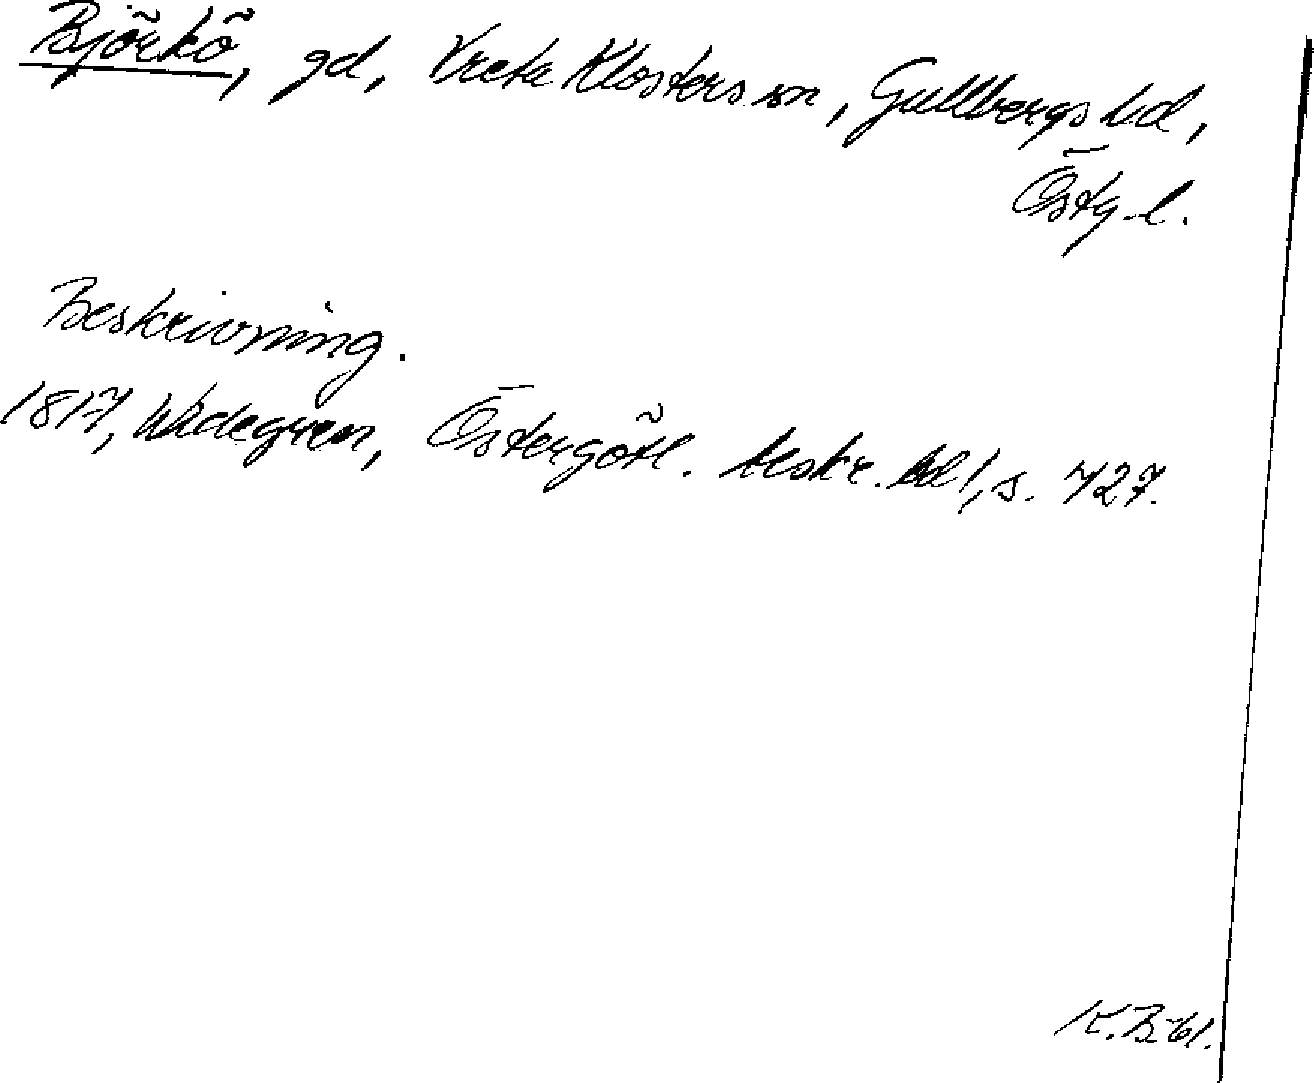 Björkö, gd, Vreta Klosters sn, Gullbergs hd,
Östg. l.
Beskrivning.
1817, Widegren, Östergötl. beskr. bd 1, s. 427.
K.B-61.